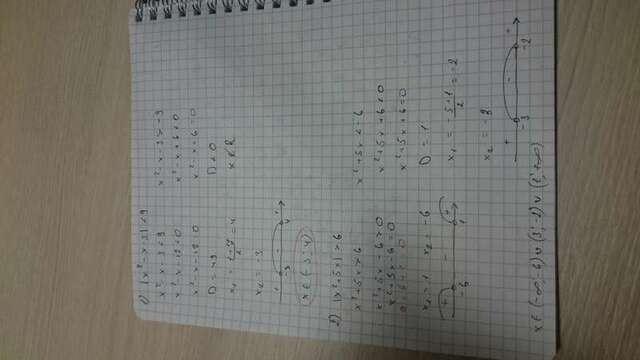 1) |x² - x - 3| < 9
x² - x - 3 < 9
x² - x - 12 < 0
x² - x - 12 = 0
D = 49
x₁ = (1+7)/2 = 4
x₂ = -3
-3 4
x ∈ (-3; 4)
x² - x - 3 > -9
x² - x + 6 > 0
D < 0
x ∈ R
2) |x² + 5x| > 6
x² + 5x > 6
x² + 5x - 6 > 0
x² + 5x - 6 = 0
x₁ = 1 x₂ = -6
+ - +
-6 1
x² + 5x < -6
x² + 5x + 6 < 0
x² + 5x + 6 = 0
D = 1
x₁ = (-5+1)/2 = -2
x₂ = -3
+ - +
-3 -2
x ∈ (-∞; -6) ∪ (-3; -2) ∪ (1; +∞)